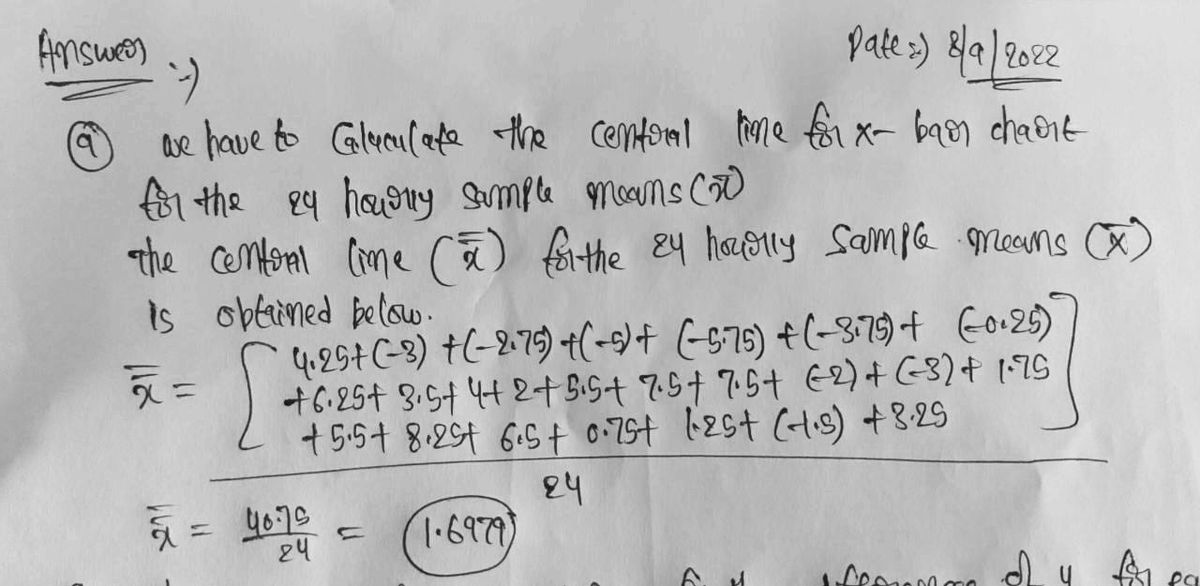 Answer :-) Date :-) 8/9/2022
(a) we have to Calculate the central line for x-bar chart
for the 24 hourly sample means (x̄)
the central line (x̿) for the 24 hourly sample means (x̄)
is obtained below.
4.25+(-3)+(-2.75)+(-5)+(-5.75)+(-3.75)+(-0.25)
x̿ = +6.25+3.5+4+2+5.5+7.5+7.5+(-2)+(-3)+1.75
+5.5+8.25+6.5+0.75+1.25+(-1.5)+3.25
24
x̿ = 40.75/24 = 1.6979